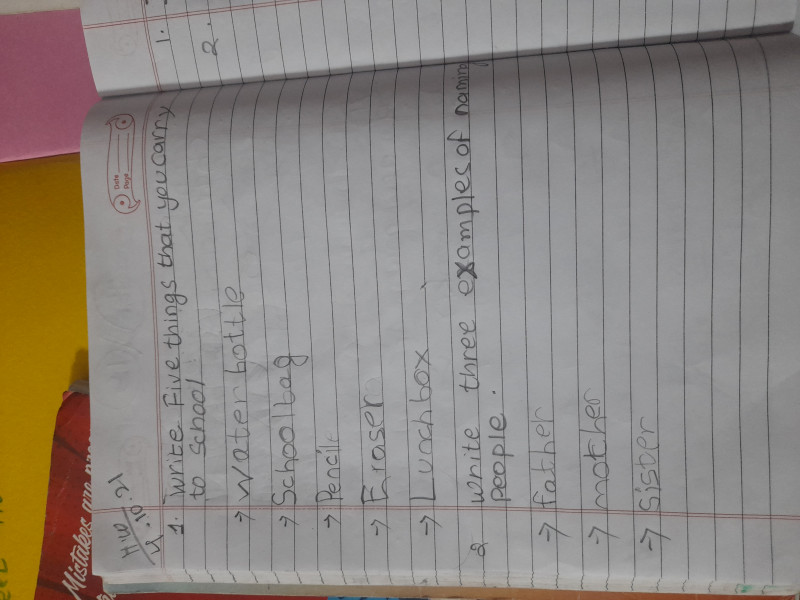 H.W
10.21
Date
Page
1. Write Five things that you carry
to school
→ Water bottle
→ School bag
→ Pencil
→ Eraser
→ Lunch box
2 write three examples of naming
people.
→ father
→ mother
→ sister
1.
2.
Mistakes are